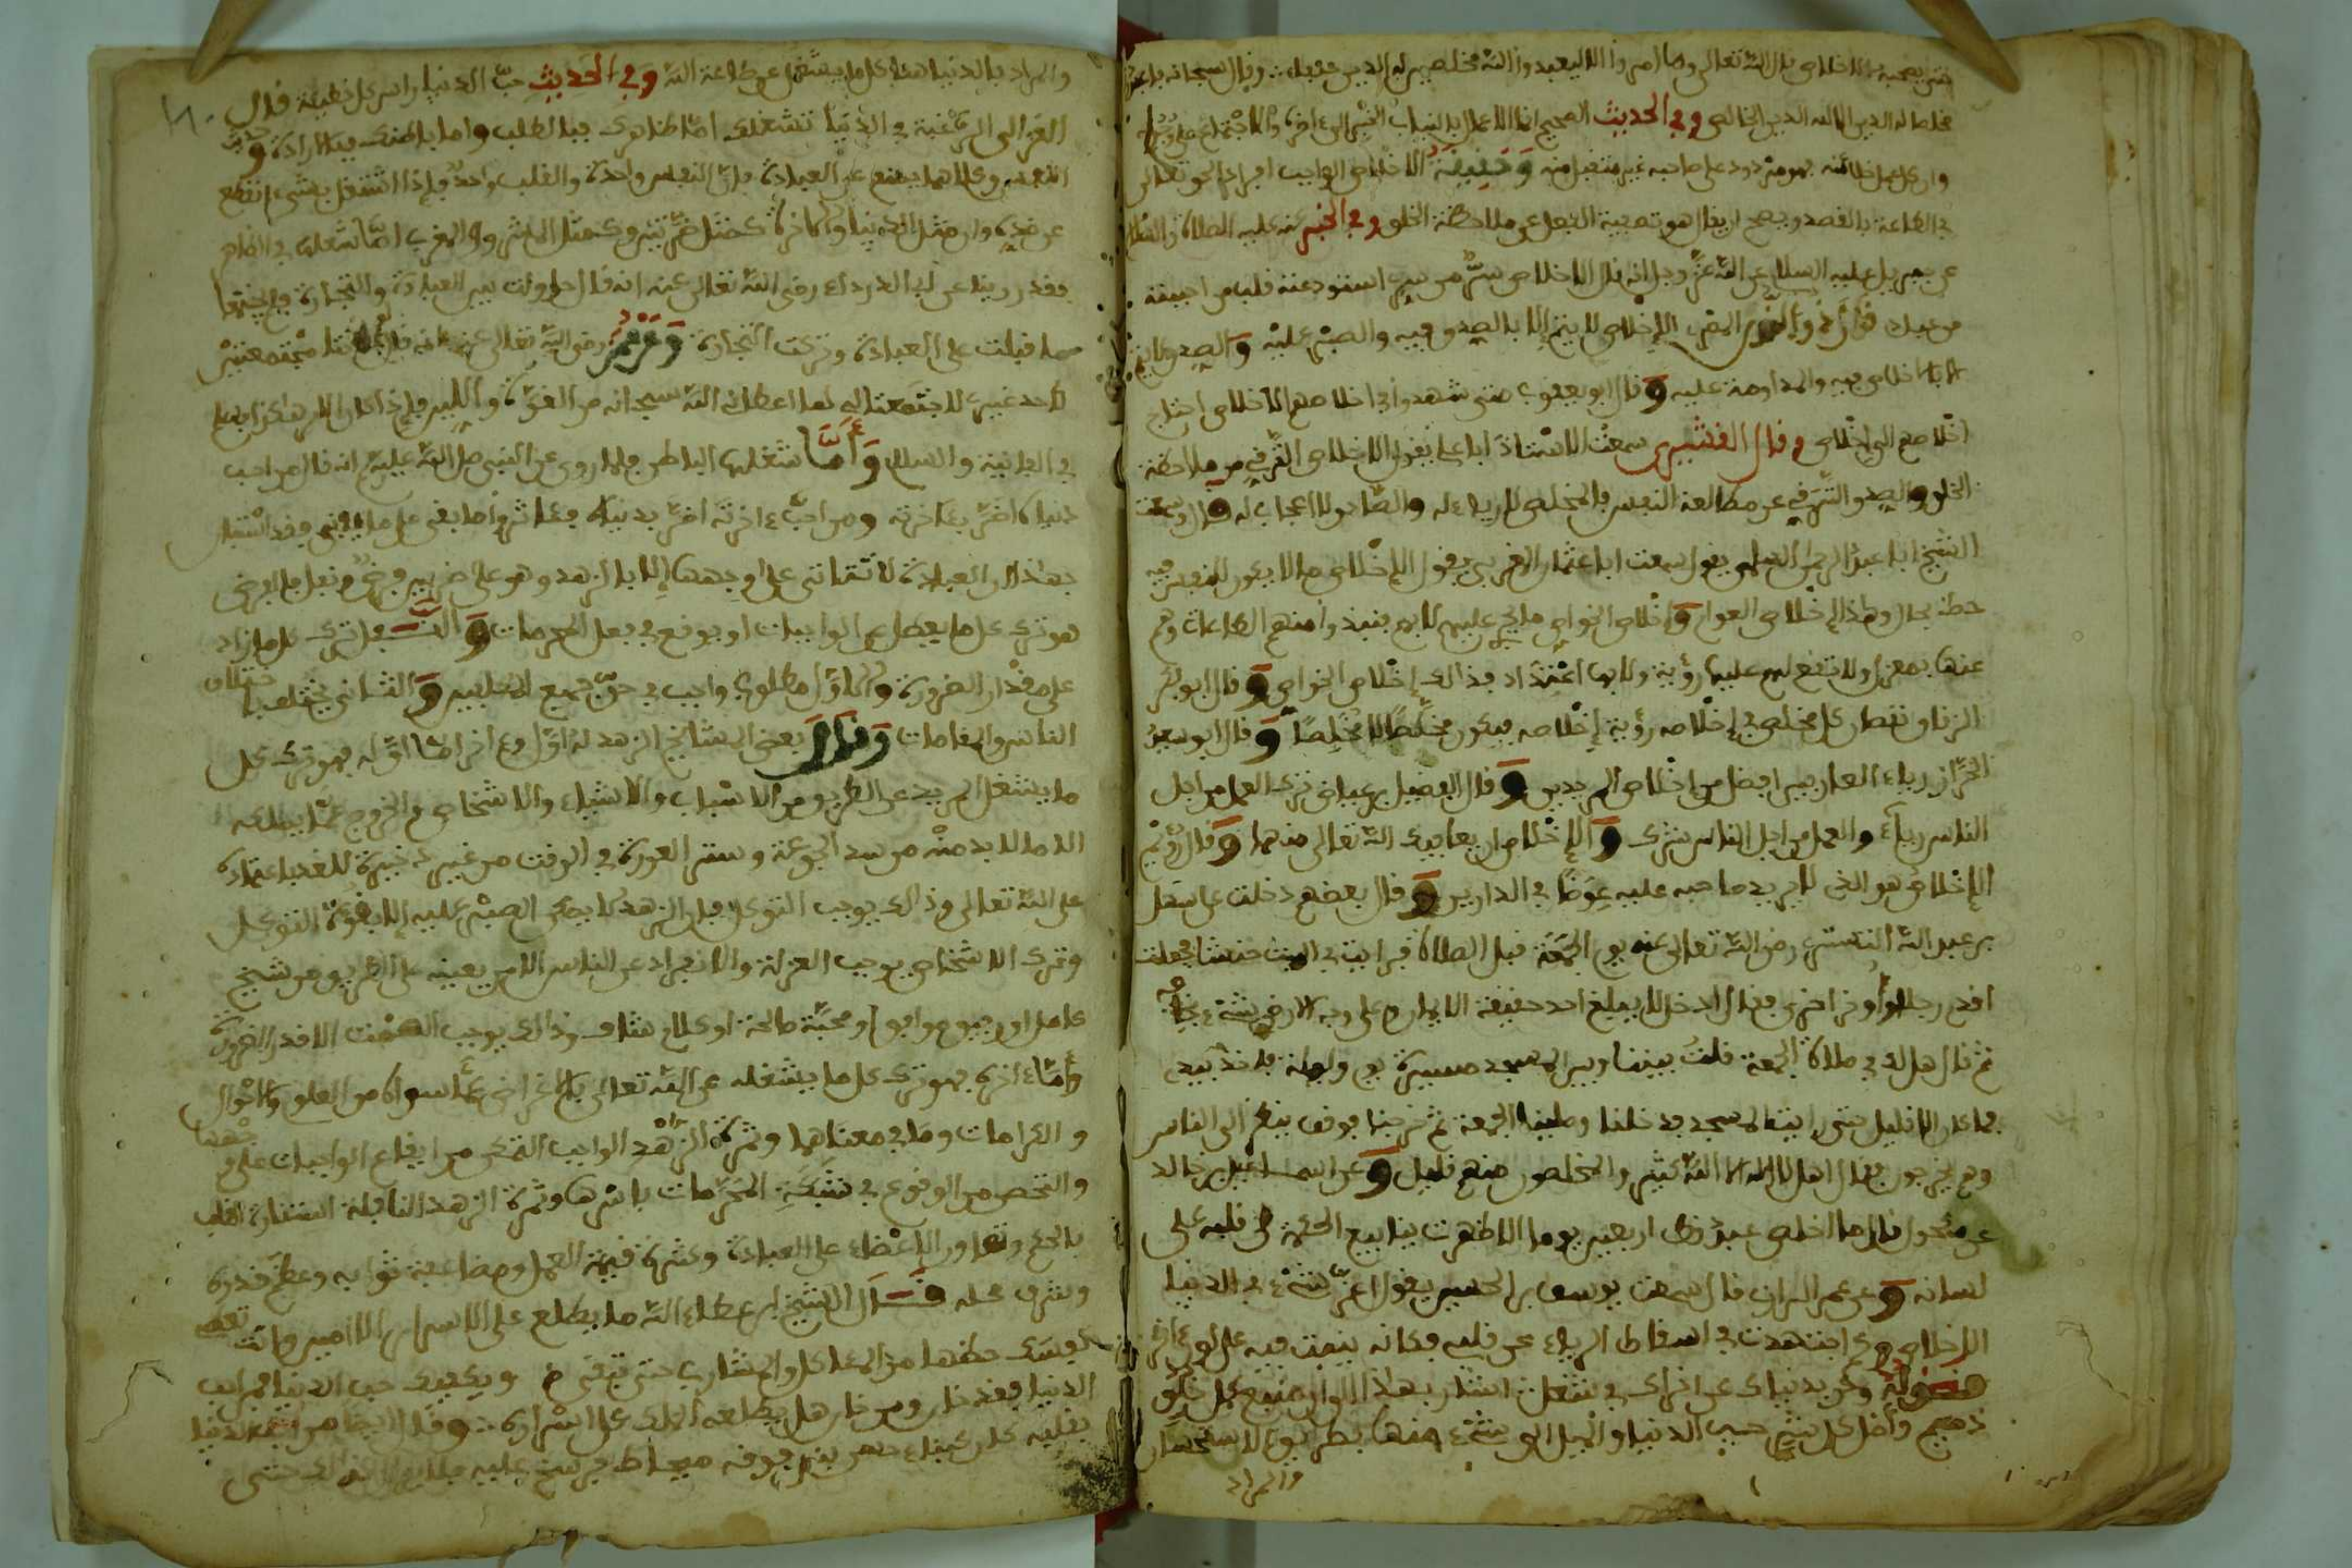 بالاخلاص قال الله تعالى وما امروا الا ليعبدوا الله مخلصين له الدين حنفاء وقال سبحانه فاعبد
مخلصا له الدين الا لله الدين الخالص وفي الحديث الصحيح انما الاعمال بالنيات
وان كل عمل صاحبه غير متقبل منه وحقيقة الاخلاص الواجب افراد الحق تعالى
في الطاعة بالقصد ويصح ان يقال هو تصفية الفعل عن ملاحظة الخلق وفي الخبر عنه عليه الصلاة والسلام
عن جبريل عليه السلام عن الله عز وجل انه قال الاخلاص سر من سري استودعته قلب من احببته
من عبادي قال ذو النون المصري الاخلاص لا يتم الا بالصدق فيه والصبر عليه والصدق لا يتم
الا بالاخلاص فيه والمداومة عليه وقال ابو يعقوب متى شهدوا في اخلاصهم الاخلاص احتاج
اخلاصهم الى اخلاص وقال القشيري سمعت الاستاذ ابا علي يقول الاخلاص التوقي من ملاحظة
الخلق والصدق التنقي عن مطالعة النفس فالمخلص لا رياء له والصادق لا اعجاب له قال وسمعت
الشيخ ابا عبد الرحمن السلمي يقول سمعت ابا عثمان المغربي يقول الإخلاص ما لا يكون للنفس فيه
حظ بحال وهذا إخلاص العوام وإخلاص الخواص ما يجري عليهم لا بهم فتبدوا منهم الطاعات وهم
عنها بمعزل ولا تقع لهم عليها رؤية ولا بها اعتداد فذالك إخلاص الخواص وقال ابو بكر
الزقاق نقصان كل مخلص في إخلاصه رؤية إخلاصه فيكون مخلصا لا مخلصا وقال ابو سعيد
الخراز رياء العارفين افضل من اخلاص المريدين وقال الفضيل بن عياض ترك العمل من اجل
الناس رياء والعمل من اجل الناس شرك والإخلاص ان يعافيك الله تعالى منهما وقال رويم
الإخلاص هو الذي لا يريد صاحبه عليه عوضا في الدارين وقال بعضهم دخلت على سهل
بن عبد الله التستري رضي الله تعالى عنه يوم الجمعة قبل الصلاة فرايت في البيت حنشا فجعلت
اقدم رجلا وأوخر اخرى فقال ادخل لا يبلغ احد حقيقة الايمان وعلى وجه الارض شيء يخافه
ثم قال هل لك في صلاة الجمعة قلت بيننا وبين المسجد مسيرة يوم وليلة فاخذ بيدي
فما كان الا قليل حتى رايت المسجد فدخلنا وصلينا الجمعة ثم خرجنا فوقف ينظر الى الناس
وهم يخرجون فقال اهل لا إله الا الله كثير والمخلصون منهم قليل وعن اسماعيل بن خالد
عن مكحول قال ما اخلص عبد قط اربعين يوما الا ظهرت ينابيع الحكمة من قلبه على
لسانه وعن عمر الرازي قال سمعت يوسف بن الحسين يقول اعز شيء في الدنيا
الاخلاص وكم اجتهدت في اسقاط الرياء عن قلبي فكانه ينبت فيه على لون آخر
قوله وكن بدنياك عن اخراك في شغل اشار بهذا الى ان منبع كل خلق
ذميم وأصل كل شر حب الدنيا والميل الى شيء منها بطريق الاستحسان
والمراد
والمراد بالدنيا هنا كل ما يشغل عن طاعة الله وفي الحديث حب الدنيا راس كل خطيئة قال
الغزالي الرغبة في الدنيا تشغلك اما ظاهرك فبالطلب واما باطنك فبالارادة وحديث
النفس وكلاهما يمنع عن العبادة فان النفس واحدة والقلب واحد فإذا اشتغل بشيء انقطع
عن ضده وان مثل الدنيا والاخرة كمثل ضرتين وكمثل المشرق والمغرب اما شغلها في الظاهر
فقد روينا عن ابي الدرداء رضي الله تعالى عنه انه قال حاولت بين العبادة والتجارة فلم يجتمعا
فاقبلت على العبادة وتركت التجارة وعن عمر رضي الله تعالى عنه انه قال لو كانتا مجتمعتين
لاحد غيري لاجتمعتا لي لما اعطاني الله سبحانه من القوة واللين فإذا كان الامر هكذا فما
في الفانية والسلام وأما شغلها الباطن فلما روي عن النبي صلى الله عليه وسلم انه قال من احب
دنياه اضر بئاخرته ومن احب ءاخرته اضر بدنياه فئاثروا ما يبقى على ما يفنى فقد استبان
بهذا ان العبادة لا تتاتى على وجهها إلا بالزهد وهو على ضربين فرض ونفل فالفرض
هو ترك كل ما يعطل عن الواجبات او يوقع في فعل المحرمات والنفل ترك كل ما زاد
على مقدار الضرورة والاول مطلوب واجب في حق جميع المكلفين والثاني يختلف باختلاف
الناس والمقامات وقال بعض المشائخ الزهد له اول وءاخر اما اوله فهو ترك كل
ما يشغل المريد عن الطريق من الاسباب والاشياء والاشخاص والخروج عما يملكه
الا ما لا بد منه من سد الجوعة وستر العورة في الوقت من غير ذخيرة للغد اعتمادا
على الله تعالى وذالك يوجب التوكل فان الزهد لا يمكن الصبر عليه إلا بقوة التوكل
وترك الاشخاص يوجب العزلة والانفراد عن الناس الا من يعينه على الطريق من شيخ
كامل او رفيق موافق او محبة صالحة او كلام شاف وذالك يوجب الصمت الا قدر الضرورة
وأما ءاخره فهو ترك كل ما يشغله عن الله تعالى بالاعراض عما سواه من العلوم والاحوال
والكرامات وما في معناها وثمرة الزهد الواجب التمكن من ايقاع الواجبات على وجهها
والتخلص من الوقوع في شبكة المحرمات باسرها وثمرة الزهد النافلة استنارة القلب
بالحكم وتعاون الاعضاء على العبادة وكثرة قيمة العمل ومضاعفة ثوابه وعظم قدره
وشرف محله قال الشيخ ابن عطاء الله ما يطلع على الاسرار إلا امين وانت تعطي
نفسك حظها من الماكل والمشارب حتى تمتلئ ويكفيك حب الدنيا فمن احب
الدنيا فقد خان ومن خان هل يطلعه الملك على اسراره وقال ايضا من احب الدنيا
بقلبه كان كمن بنى بناء حسن فوقه مرحاض يرشح عليه فلا يزال كذالك حتى